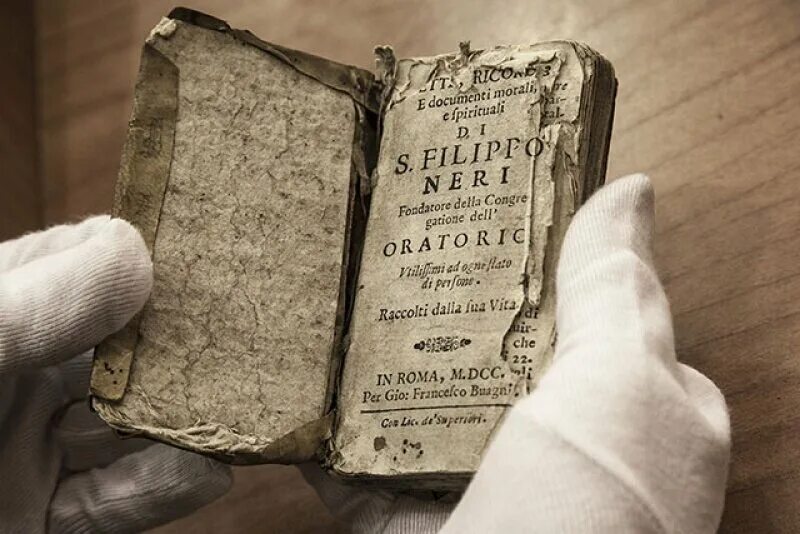 RICOR
E documenti morali,
e ſpirituali
DI
S. FILIPPO
NERI
Fondatore della Congre
gatione dell'
ORATORIO
Vtiliſſimi ad ogne ſtato
di perſone.
Raccolti dalla ſua Vita
di
uir-
che
22.
IN ROMA, M.DCC.
Per Gio: Franceſco Buagni
Con Lic. de' Superiori.